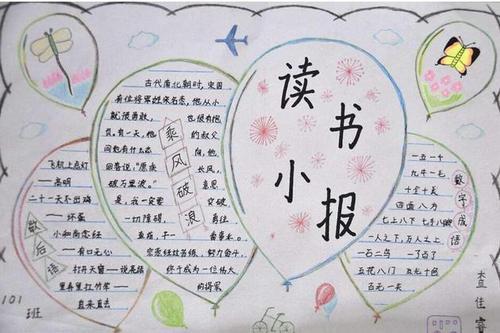 读书
小报
古代南北朝时,宋国
有位将军姓宗名悫,他从小
就很勇敢,也很有抱
负,有一天,他的叔父
问他有什么志向,他
回答说:"愿乘长风,
破万里浪。"意思
是,我一定要突破
一切障碍,勇往
直前,干一番事业。
宗悫经过苦练,努力奋斗,
终于成为一位伟大
的将军
乘风破浪
飞机上点灯
——高明
二十一天不出鸡
——坏蛋
小和尚念经
——有口无心
打开天窗——说亮话
里弄里扛竹竿——
直来直去
歇后语
一五一十
九牛一毛
十全十美
四面八方
七上八下 七手八脚
一人之下,万人之上
一石二鸟 一了百了
五花八门 五光十色
百无一失
数字成语
101
班